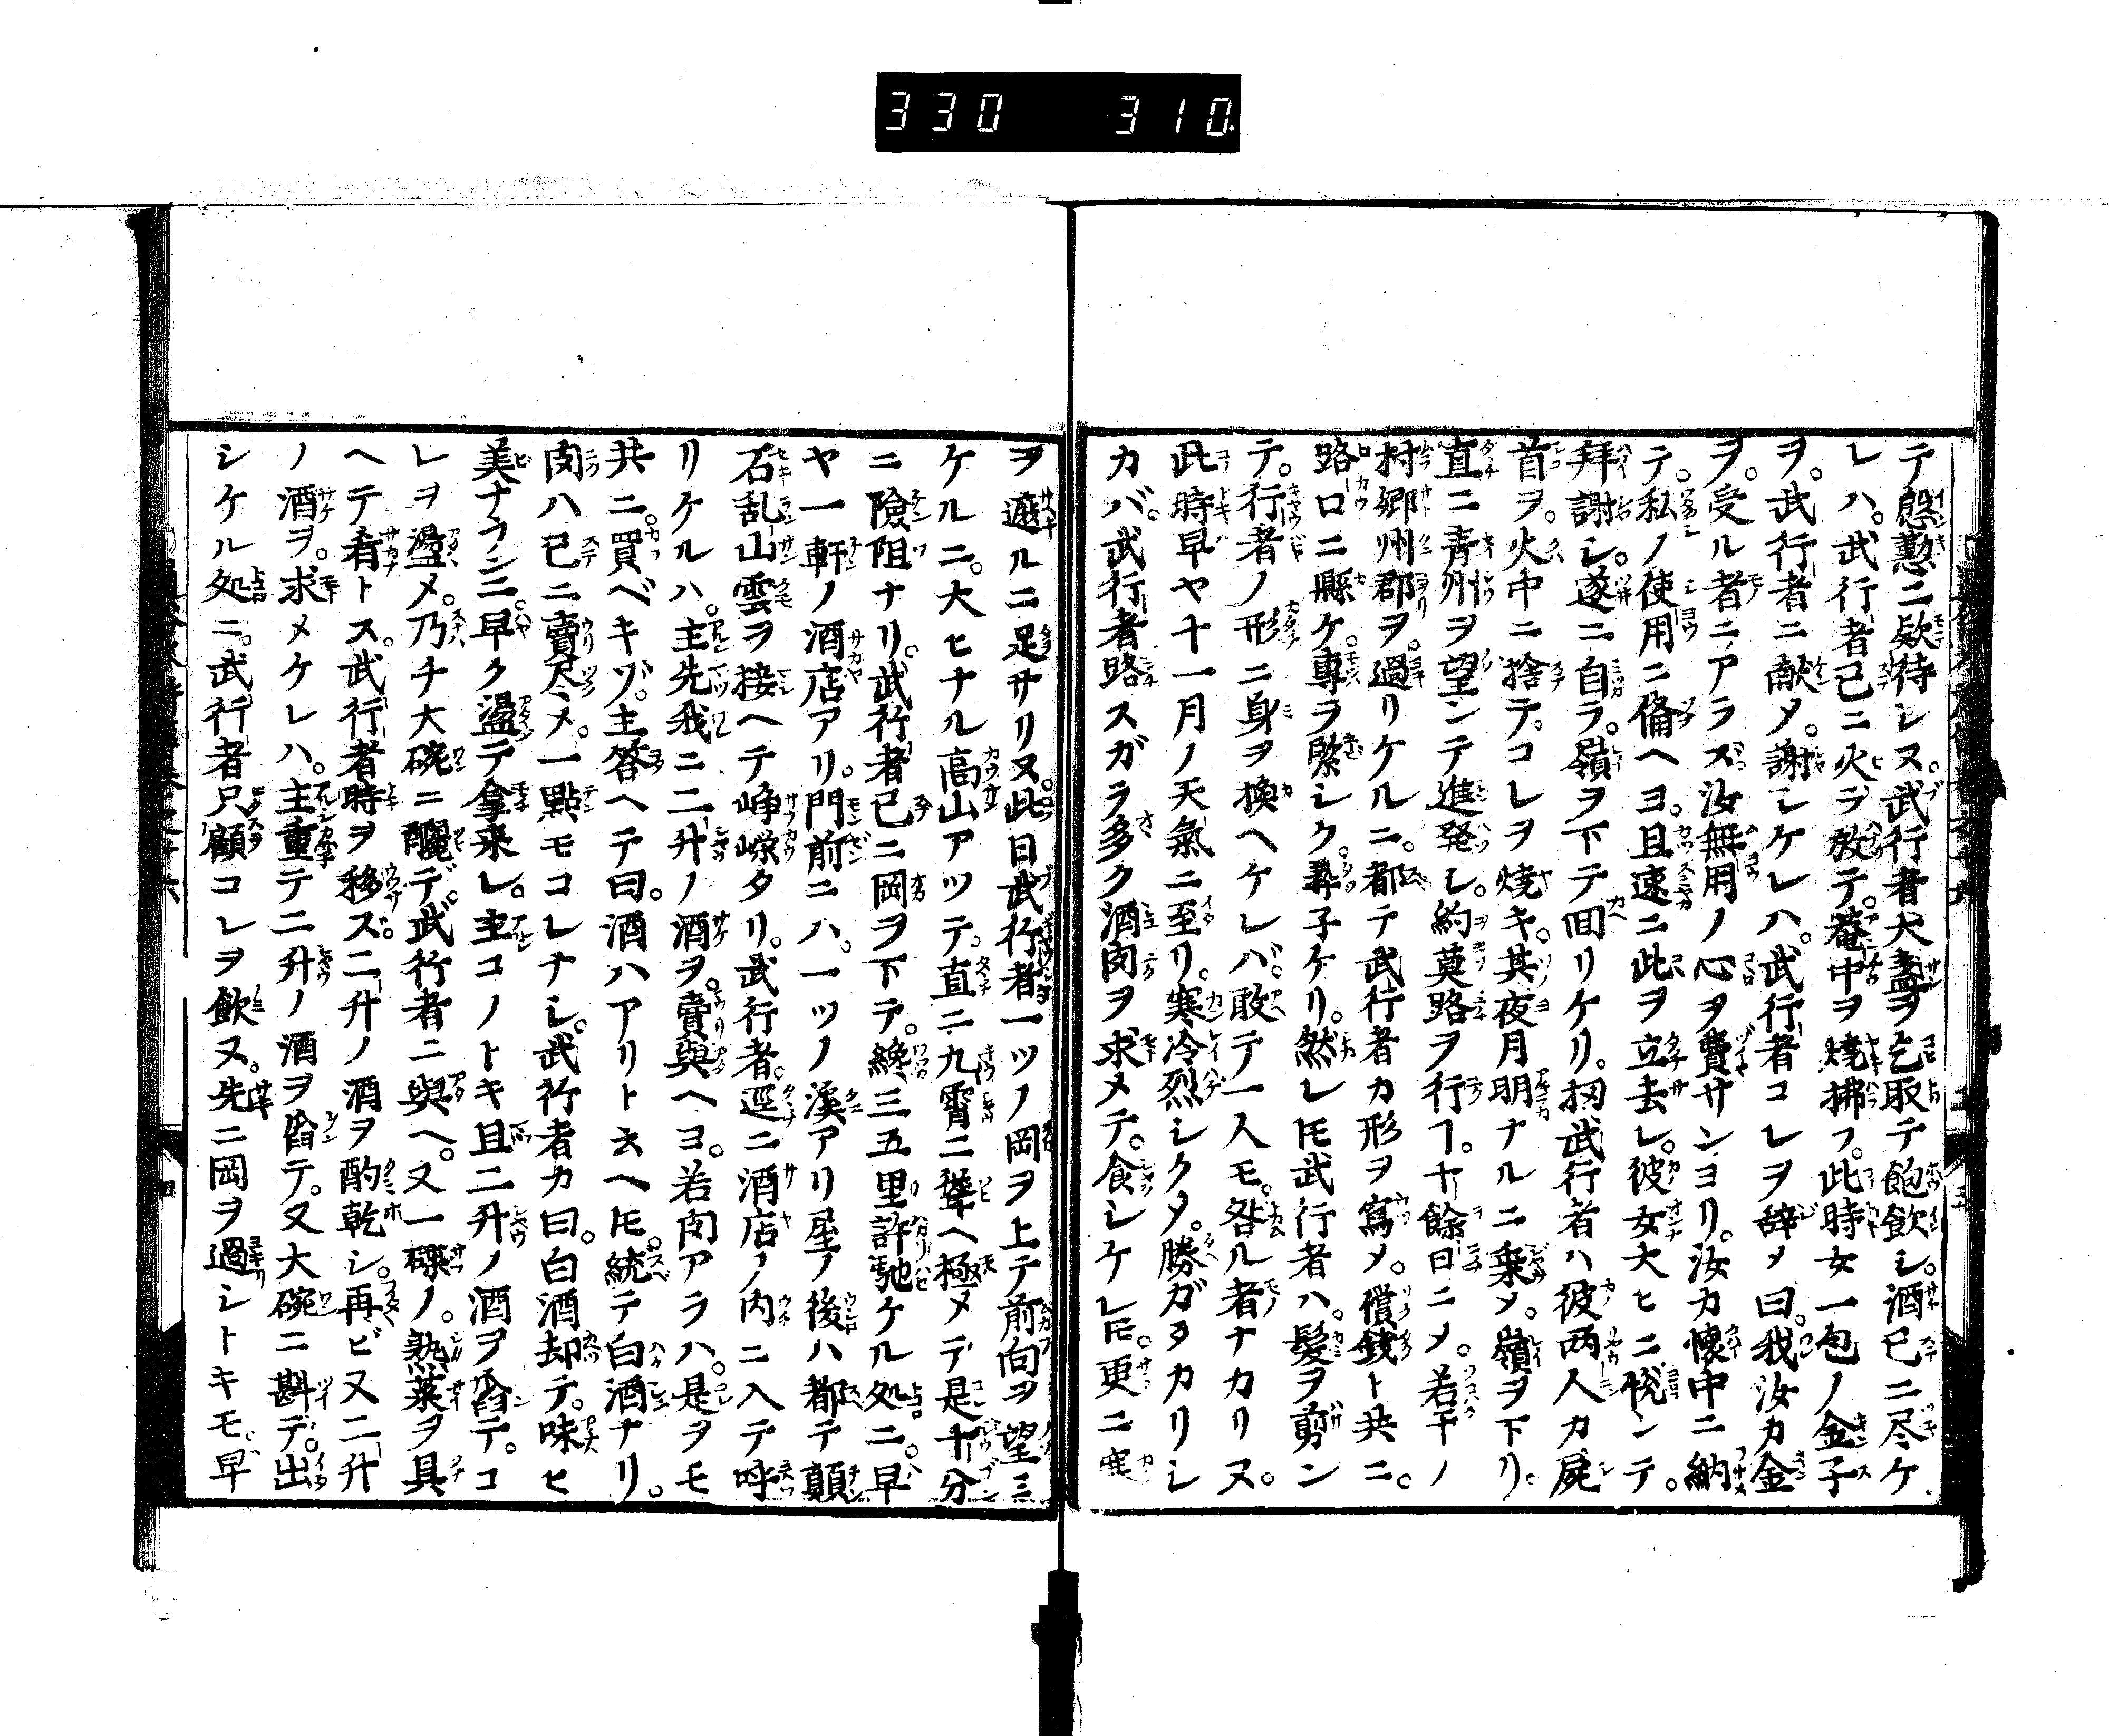 330 310.
テ慇懃ニ欵待シヌ。武行者大盞ヲ乞取テ飽飲シ。酒已ニ尽ケ
レハ。武行者已ニ火ヲ放テ。菴中ヲ燒拂フ。此時女一包ノ金子
ヲ。武行者ニ献メ。謝シケレハ。武行者コレヲ辞メ曰。我汝カ金
ヲ。受ル者ニアラズ汝無用ノ心ヲ費サンヨリ。汝カ懐中ニ納
テ。私ノ使用ニ備ヘヨ。且速ニ此ヲ立去レ。彼女大ヒニ悦ンテ。
拜謝シ。遂ニ自ラ。嶺ヲ下テ回リケリ。扨武行者ハ彼両人カ屍
首ヲ。火中ニ捨テ。コレヲ燒キ。其夜月明ナルニ乗メ。嶺ヲ下リ。
直ニ青州ヲ望ンテ進発シ。約莫路ヲ行フ。十餘日ニメ。若干ノ
村郷州郡ヲ。過リケルニ。都テ武行者カ形ヲ寫メ。償銭ト共ニ。
路口ニ縣ケ。專ラ緊シク。尋子ケリ。然レ𪜈武行者ハ。髪ヲ剪ン
テ。行者ノ形ニ身ヲ換ヘケレバ。敢テ一人モ。咎ル者ナカリヌ。
此時早ヤ十一月ノ天氣ニ至リ。寒冷烈シクメ。勝ガタカリシ
カバ。武行者路スガラ多ク酒肉ヲ求メテ。食シケレ𪜈。更ニ寒
ヲ遮ルニ足サリヌ。此日武行者一ツノ岡ヲ上テ前向ヲ望ミ
ケルニ。大ヒナル高山アツテ。直ニ九霄ニ聳ヘ極メテ是十分
ニ險阻ナリ。武行者已ニ岡ヲ下テ。纔三五里許馳ケル処ニ。早
ヤ一軒ノ酒店アリ。門前ニハ。一ツノ溪アリ屋ノ後ハ都テ顛
石乱山雲ヲ接ヘテ崢嶸タリ。武行者。逕ニ酒店ノ内ニ入テ呼
リケルハ。主先我ニ二升ノ酒ヲ。賣與ヘヨ。若肉アラハ。是ヲモ
共ニ。買ベキゾ。主答ヘテ曰。酒ハアリト云ヘ𪜈。統テ白酒ナリ。
肉ハ已ニ賣尽メ。一點モコレナシ。武行者カ曰。白酒却テ。味ヒ
美ナラン二早ク盪テ拿来レ。主コノトキ且二升ノ酒ヲ舀テ。コ
レヲ盪メ。乃チ大碗ニ釃デ。武行者ニ與ヘ。又一碟ノ。熟菜ヲ具
ヘテ肴トス。武行者時ヲ移ズ。二升ノ酒ヲ酌乾シ。再ビ又二升
ノ酒ヲ。求メケレハ。主重テ二升ノ酒ヲ舀テ。又大碗ニ斟デ。出
シケル処ニ。武行者只顧コレヲ飲ヌ。先ニ岡ヲ過シトキモ。早